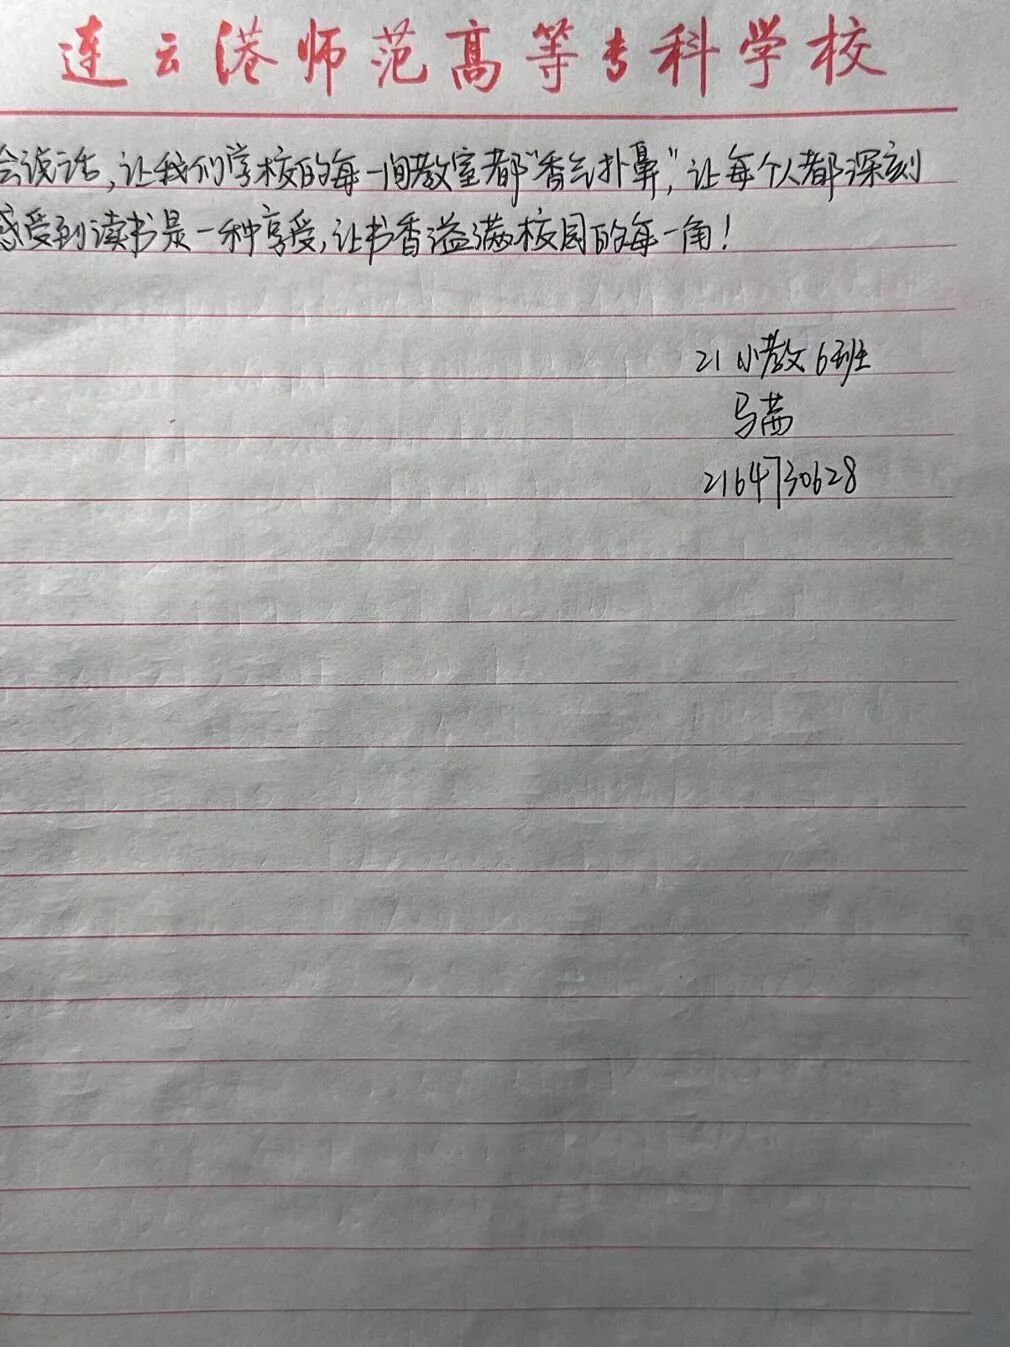 连云港师范高等专科学校
会说话,让我们学校的每一间教室都"香气扑鼻",让每个人都深刻
感受到读书是一种享受,让书香溢满校园的每一角!
21小教6班
马茜
2164730628